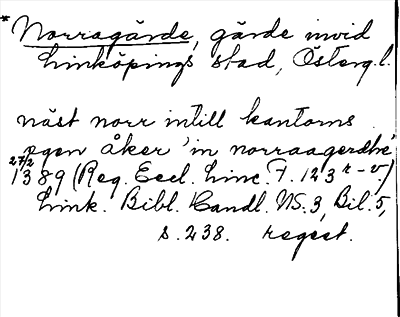 * Norragärde, gärde invid
Linköpings stad, Österg.l.
näst norr intill kantorns
egen åker 'in norraagerdhe'
27/2
1389 (Reg. Eccl. Linc. F. 123 r-v.)
Link. Bibl. Handl. NS. 3, Bil. 5,
s. 238. regest.